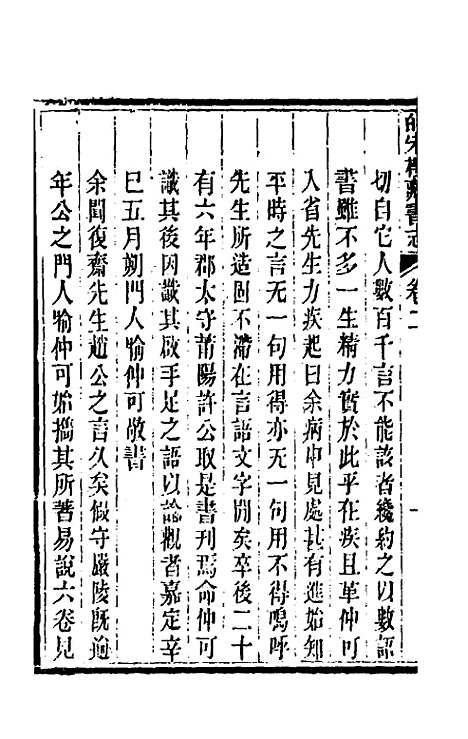 皕宋樓藏書志 卷二
切白它人數百千言不能該者纔約之以數語
書雖不多一生精力實於此乎在疾且革仲可
入省先生力疾起曰余病中見處甚有進始知
平時之言无一句用得亦无一句用不得嗚呼
先生所造固不滯在言語文字閒矣卒後二十
有六年郡太守莆陽許公取是書刊焉命仲可
識其後因識其啟手足之語以諗觀者嘉定辛
巳五月朔門人喻仲可敬書
余聞復齋先生趙公之言久矣假守嚴陵旣逾
年公之門人喻仲可始攜其所著易說六卷見